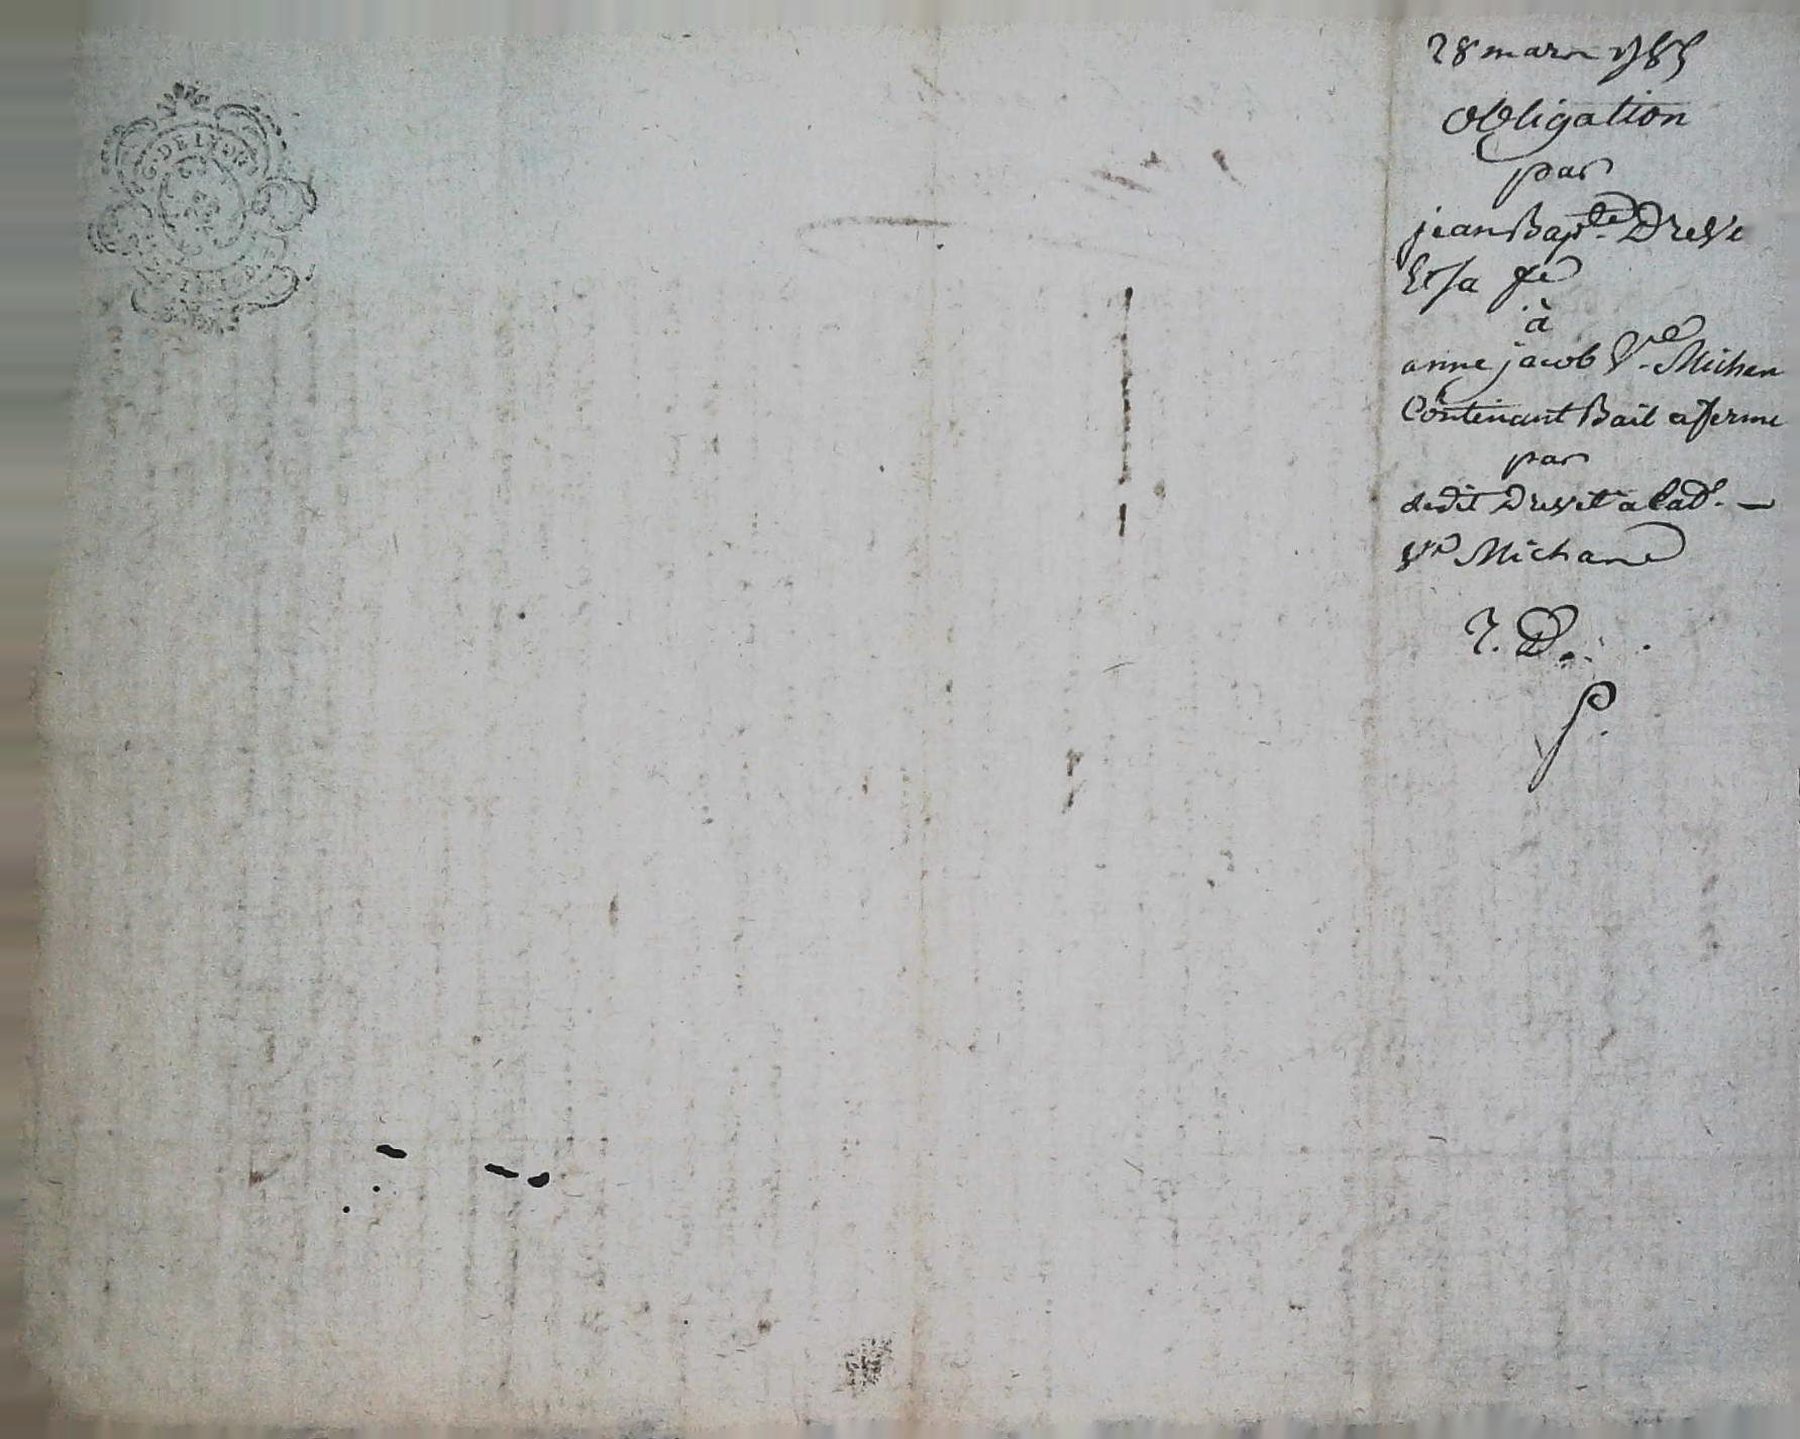 DE LYON
28 mars 1785
obligation
par
jean Bapte Dreve
Et sa fe
à
anne jacob Ve Michan
Contenant Bail a ferme
par
dedit Drevet a lad.
Ve Michan